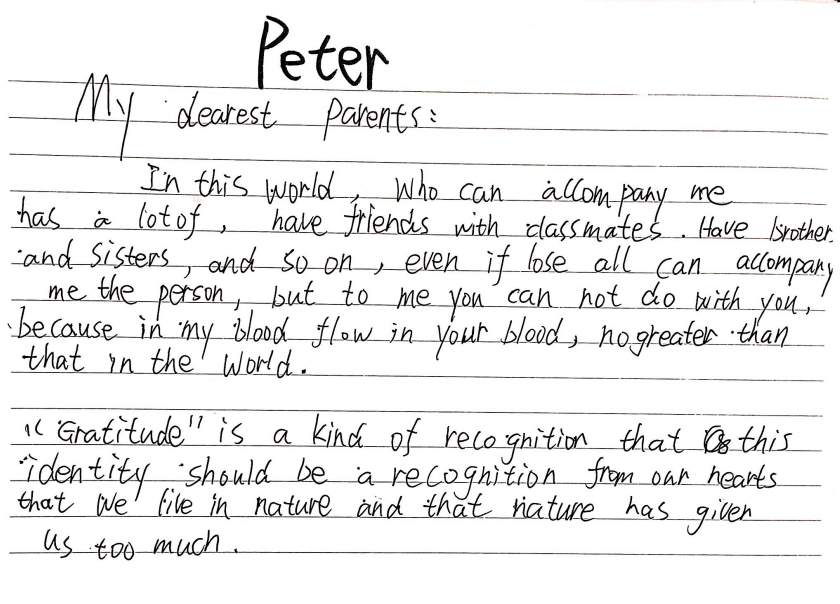 Peter
My dearest parents:
In this world, who can accompany me
has a lot of, have friends with classmates. Have brother
and sisters, and so on, even if lose all can accompany
me the person, but to me you can not do with you,
because in my blood flow in your blood, no greater than
that in the world.
"Gratitude" is a kind of recognition that this
identity should be a recognition from our hearts
that we live in nature and that nature has given
us too much.